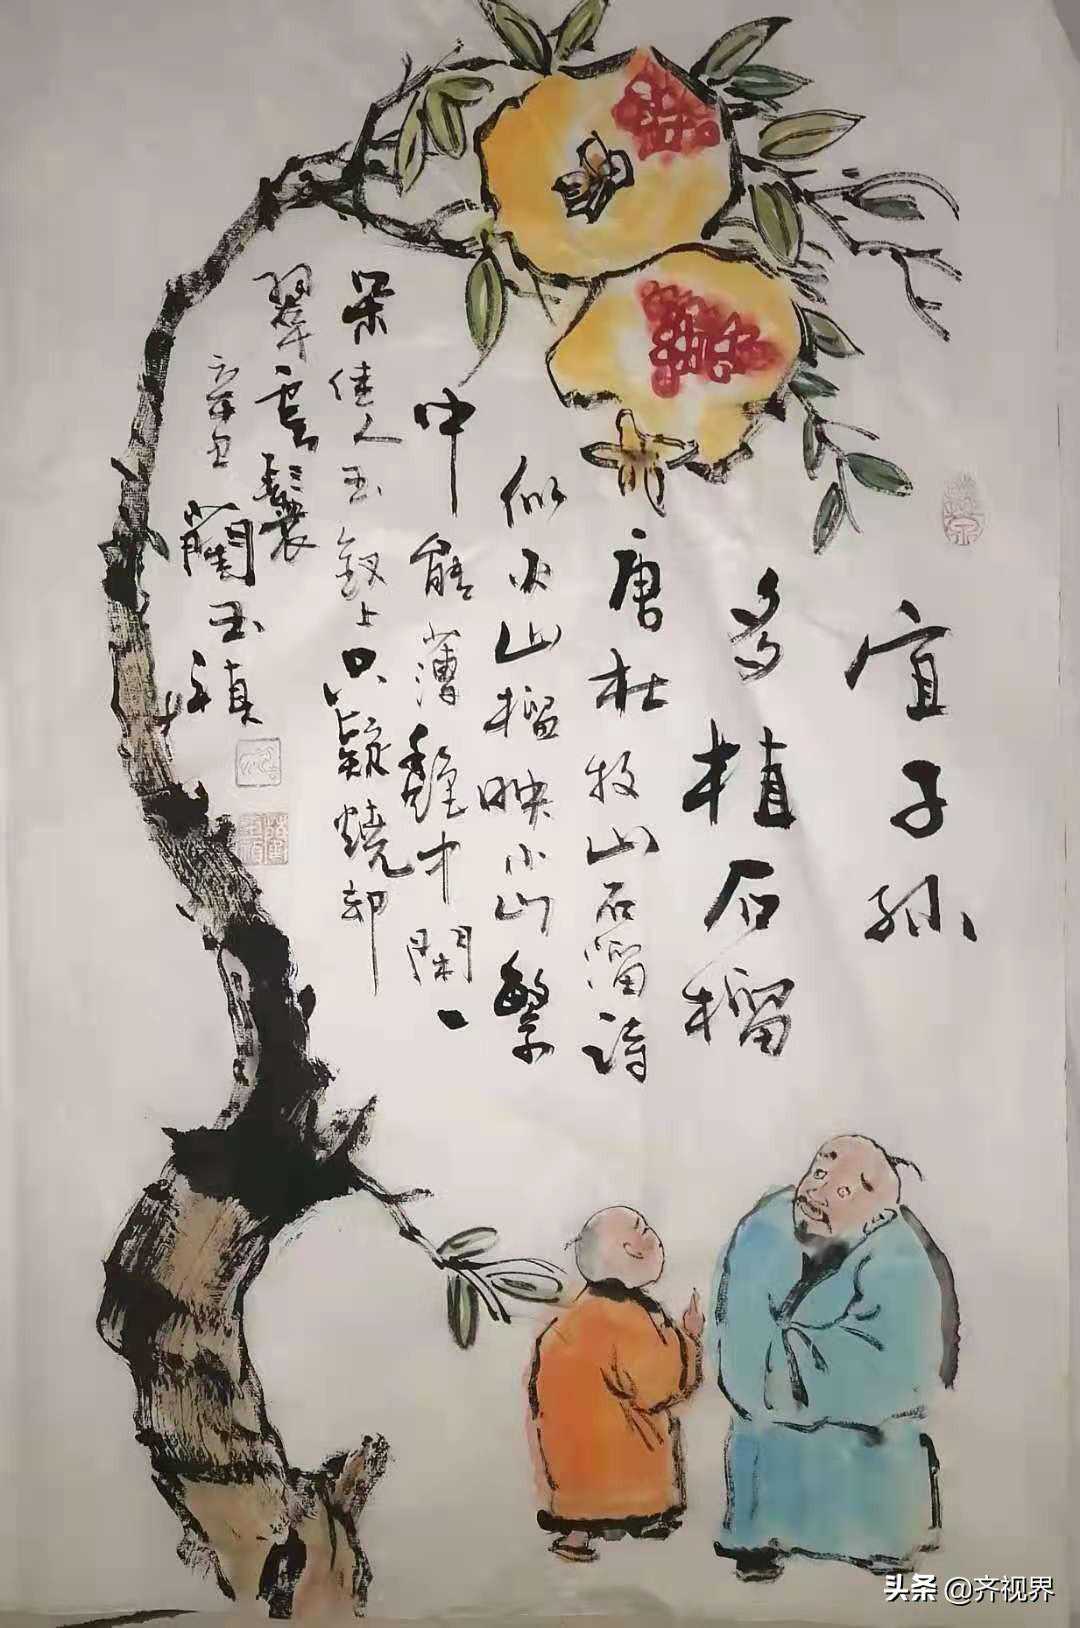 宜子孙
多植石榴
唐杜牧山石溜诗
似火山榴映小山繁
中能薄艷中閑一
朵佳人玉钗上只疑烧却
翠雲鬟
辛丑 藺玉禎
头条 @齐视界